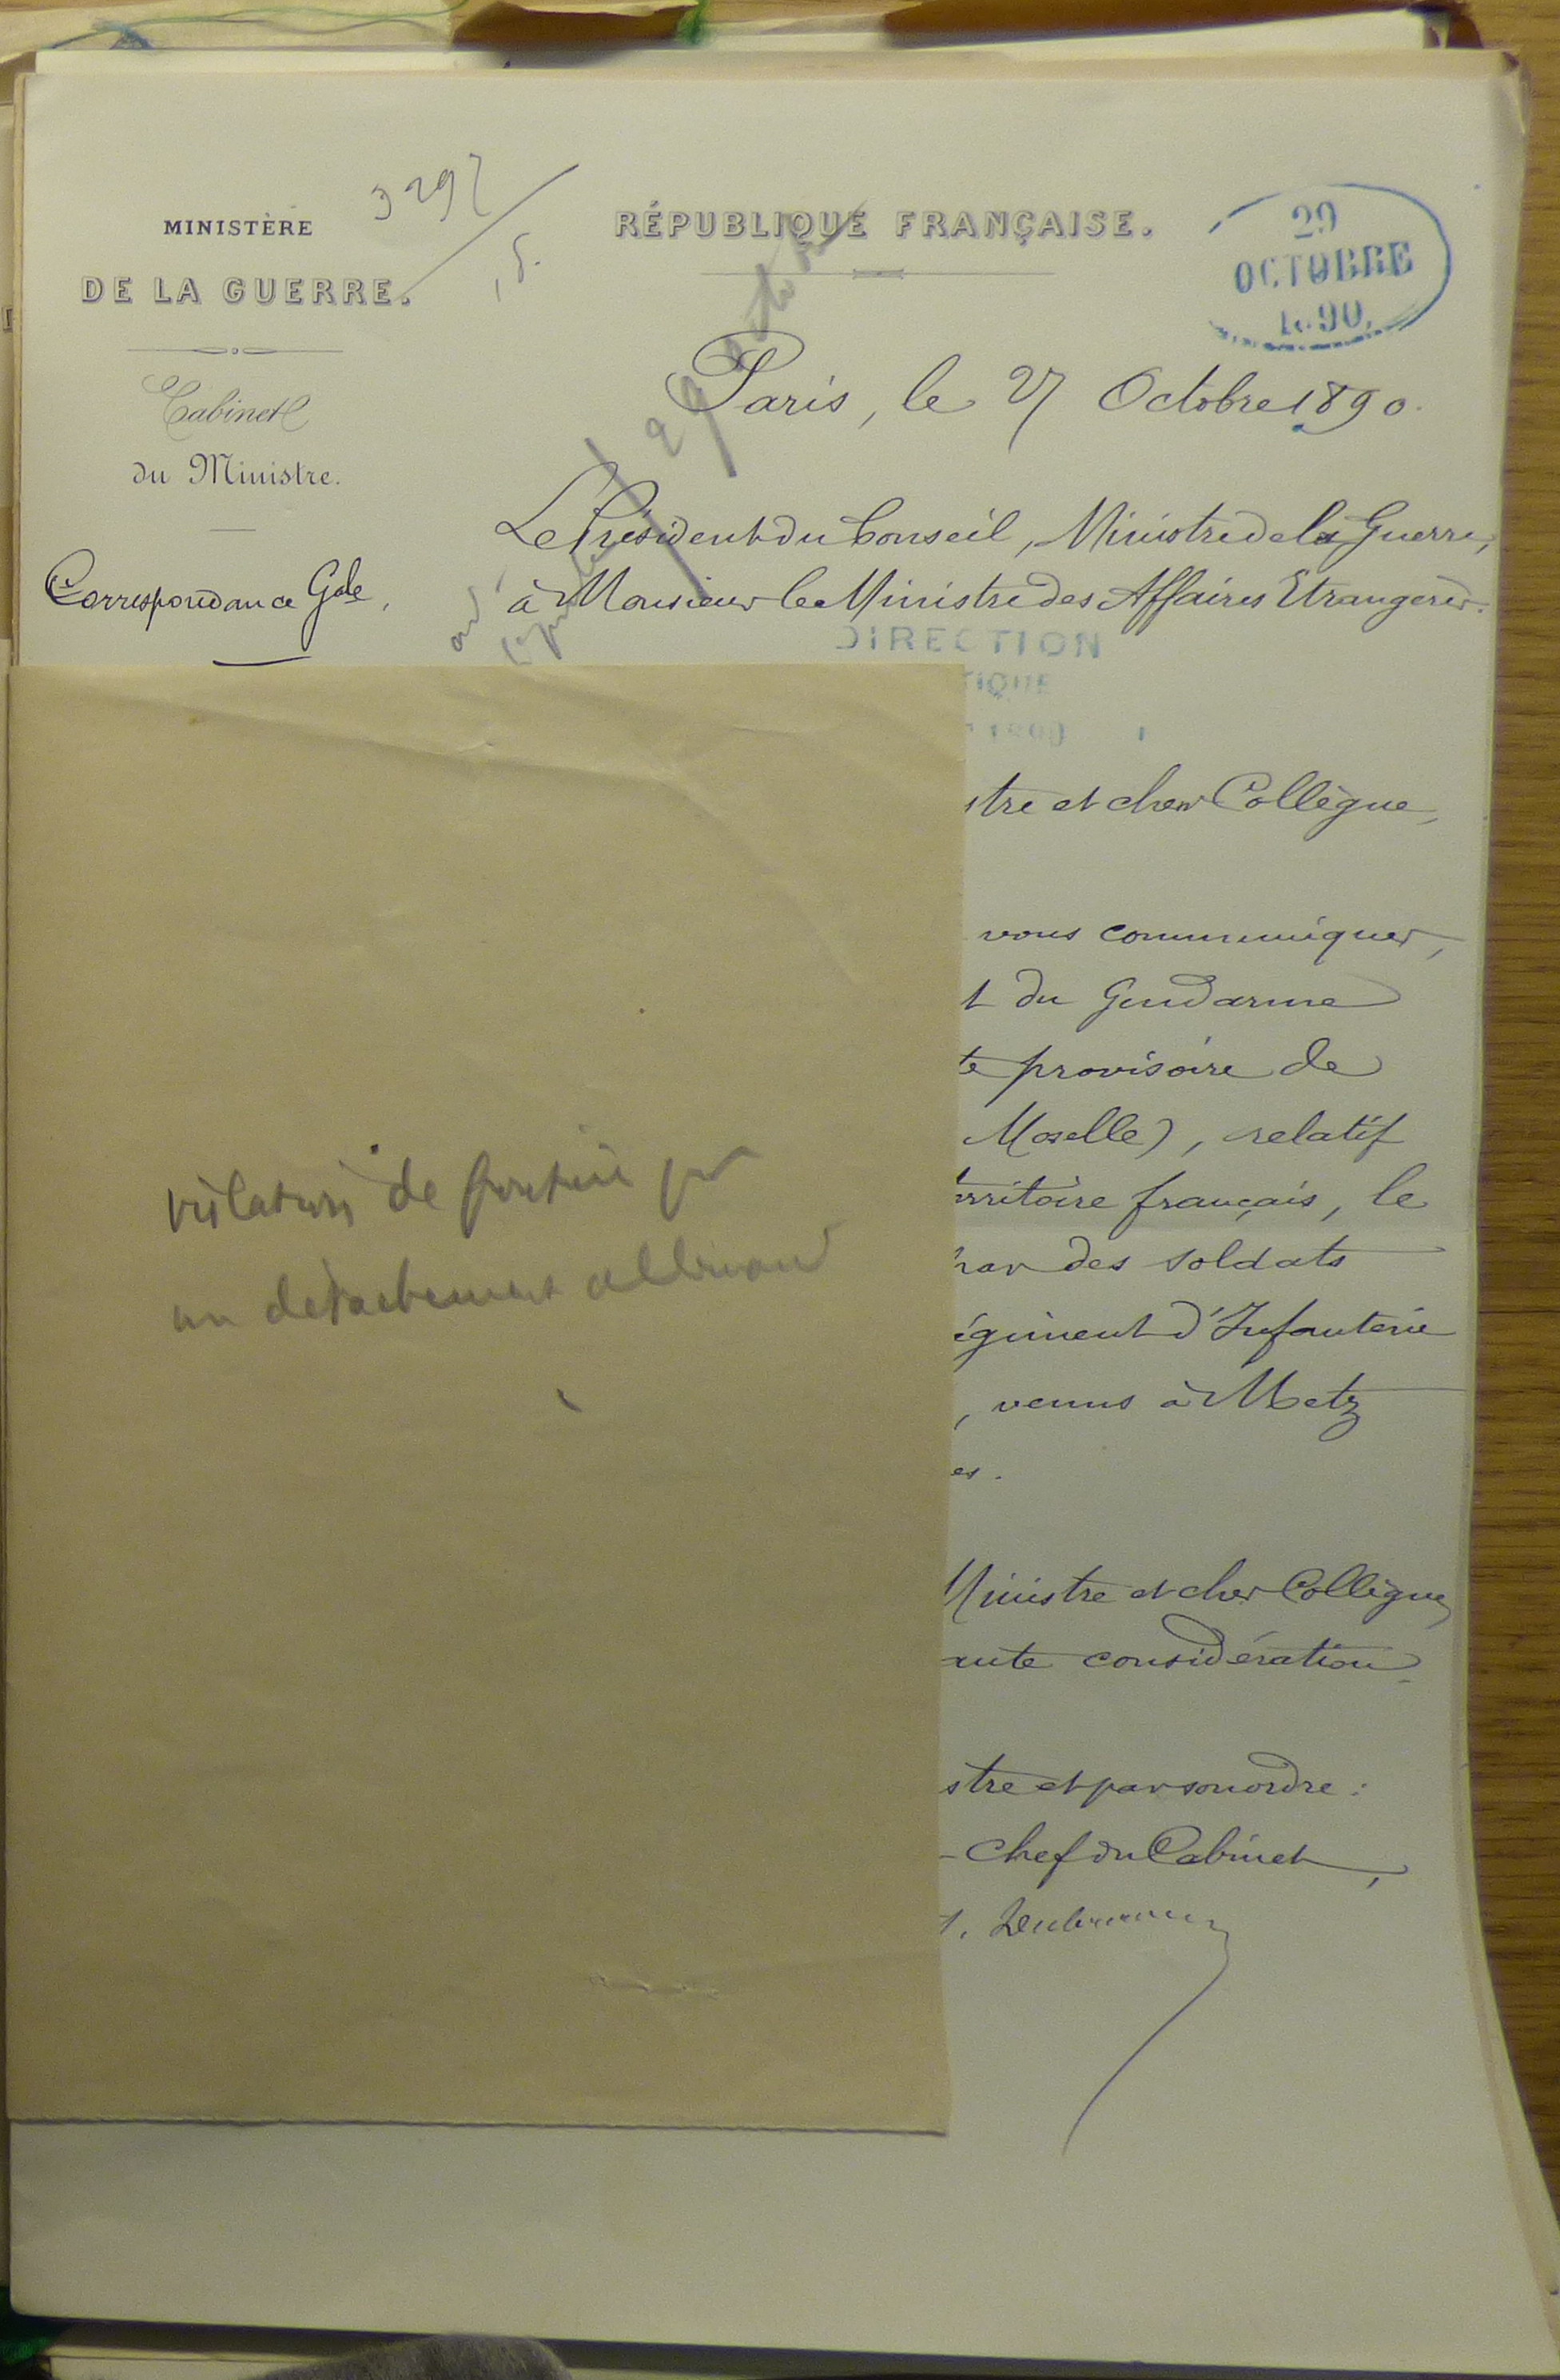 3292
15.
MINISTÈRE
DE LA GUERRE.
Cabinet
du Ministre.
Correspondance Gale,
RÉPUBLIQUE FRANÇAISE.
29
OCTOBRE
1890.
29 octobre
Paris, le 27 Octobre 1890.
Le Président du Conseil, Ministre de la Guerre,
à Monsieur le Ministre des Affaires Etrangères.
DIRECTION
TIQUE
1890
stre et cher Collègue,
vous communiquer,
t du Gendarme
te provisoire de
Moselle), relatif
erritoire français, le
par des soldats
égiment d'Infanterie
, venus à Metz
es.
Ministre et cher Collègue,
aute considération.
stre et par son ordre:
- Chef du Cabinet,
violation de frontière par
un détachement allemand